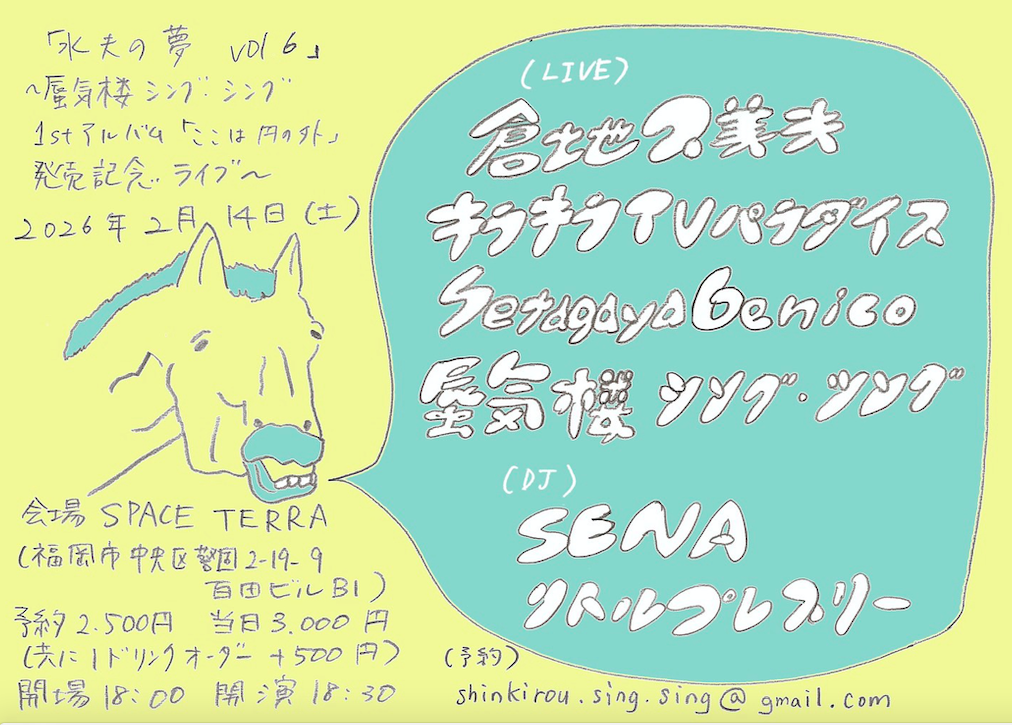 「水夫の夢 vol 6」
〜蜃気楼シング・シング
1stアルバム「ここは円の外」
発売記念ライブ〜
2026年2月14日(土)
会場 SPACE TERRA
(福岡市中央区警固2-19-9
百田ビルB1)
予約2.500円 当日3.000円
(共に1ドリンクオーダー+500円)
開場18:00 開演18:30
(LIVE)
倉地久美夫
キラキラTVパラダイス
Setagaya Genico
蜃気楼シング・シング
(DJ)
SENA
リトルプレスリー
(予約)
shinkirou.sing.sing@gmail.com